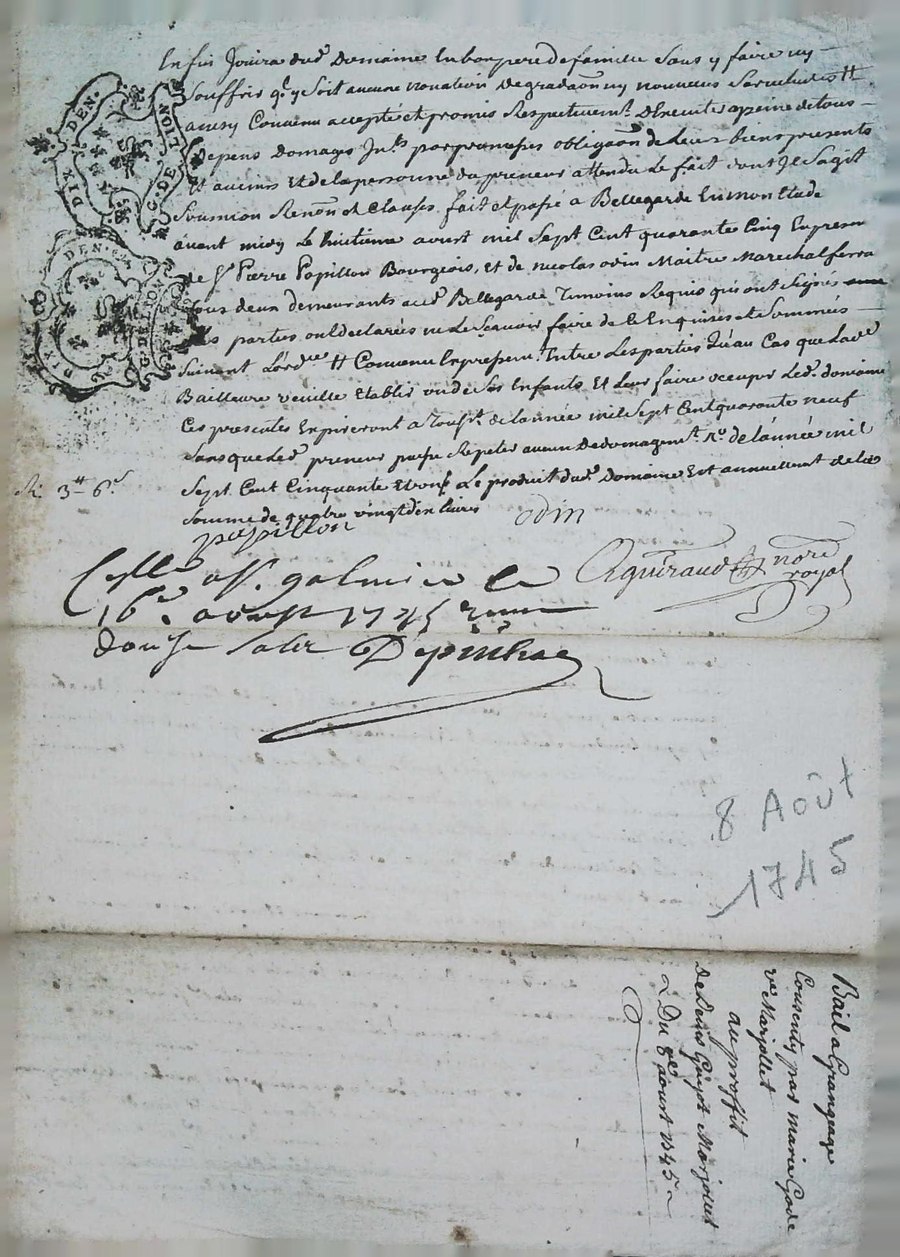 Enfin Jouira dud. Domaine En bon pere de famille Sans y faire ny
Souffrir q'l y Soit aucune novation Degradaôn ny nouveaux Servitudes #
ainsy Convenu accepté et promis Respectivemt. D'Executer a peine de tous
Depens Domages Jnts. par promesses obligaôn de Leurs biens presents
Et avenir Et de la personne du preneur attendu Le fait dont Jl Sagit
Soumision Renôn et Clauses, fait et passé a Bellegarde En mon Etude
avant midy Le huitieme aoust mil Sept Cent quarante Cinq En presen
de Sr. Pierre Papillon Bourgeois, et de nicolas odin Maitre Marechal ferra
tous deux demeurants aud. Bellegarde Temoins Requis qui ont Signés
Les partes ont declarées ne Le Scavoir faire de Ce Enquises et Sommées
Suivant L'ordce. # Convenu Expressem. Entre Les parties Qu'au Cas que Lade.
Bailleure veuille Etablir un de Ses Enfants Et Leur faire occuper Led. domaine
Ces presentes Expireront a Toust. de Lannée mil Sept Cent quarante neuf
Sans que Led. preneur puisse Repeter aucun Dedomagemt. de l'année mil
Sept Cent Cinquante Le produit dud. Domaine Est annuellement de La
Somme de quatre vingt dix livres
3# 6s
papillon
odin
Aguiraud nore
royal
DIX DEN.
G. DE LION
DIX DEN.
G. DE LION
a St. galmier le
16e. aoust 1745
douse
8 Août
1745
Bail a Grangeage
Consenty par marie Gode
ve Marjollet
au proffit
De Denis Guyot Marjollet
Du 8e aoust 1745